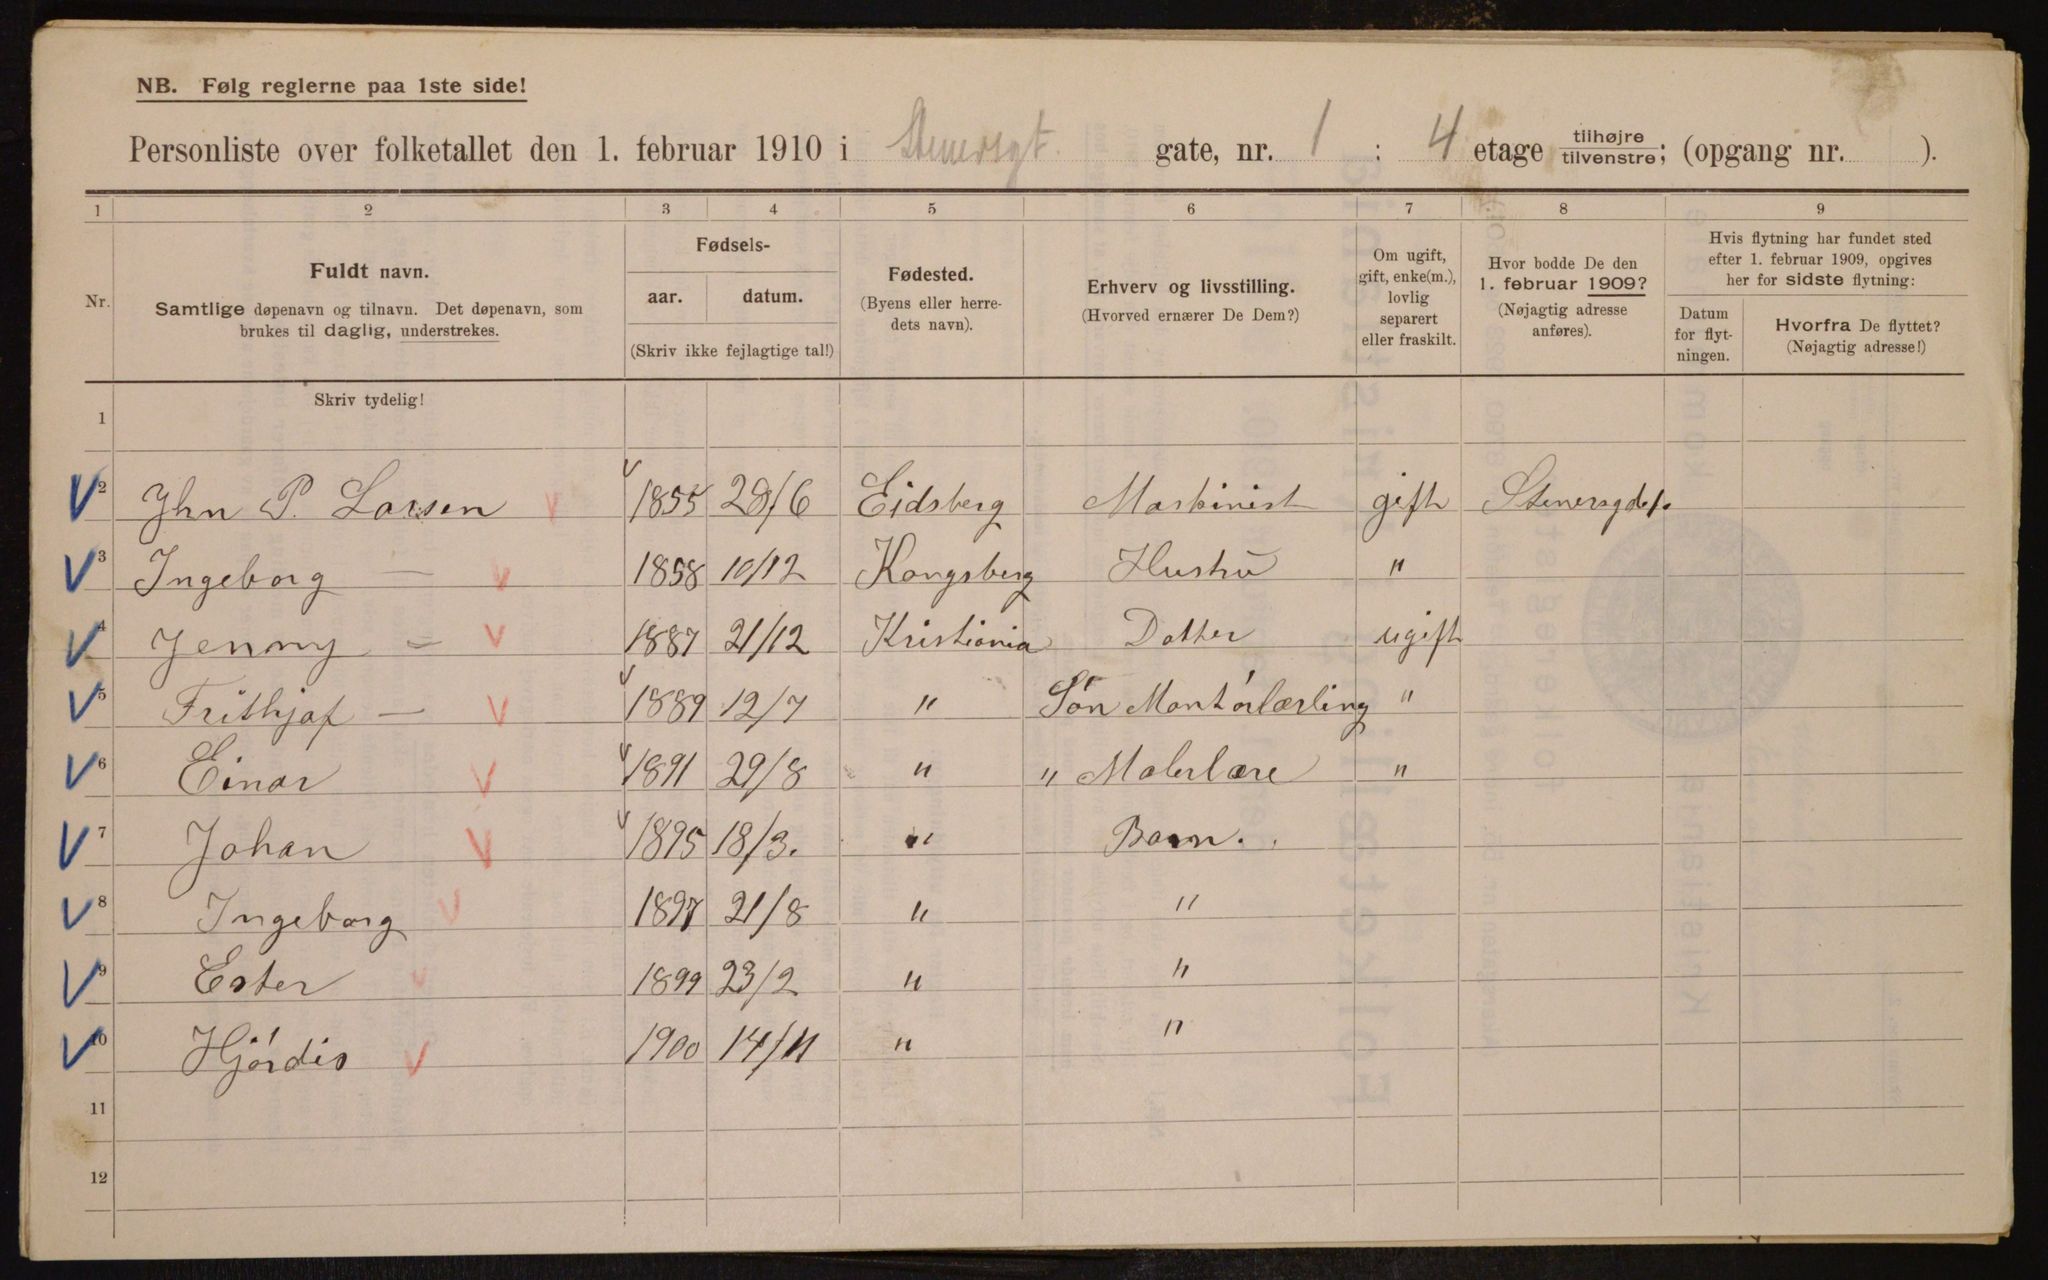 NB. Følg reglerne paa 1ste side!
Personliste over folketallet den 1. februar 1910 i Stenersgt. gate, nr. 1 : 4 etage tilhøjre/tilvenstre; (opgang nr. ).
1 2 3 4 5 6 7 8 9
Nr.
Fuldt navn.
Samtlige døpenavn og tilnavn. Det døpenavn, som
brukes til daglig, understrekes.
Fødsels-
aar. datum.
(Skriv ikke fejlagtige tal!)
Fødested.
(Byens eller herre-
dets navn).
Erhverv og livsstilling.
(Hvorved ernærer De Dem?)
Om ugift,
gift, enke(m.),
lovlig
separert
eller fraskilt.
Hvor bodde De den
1. februar 1909?
(Nøjagtig adresse
anføres).
Hvis flytning har fundet sted
efter 1. februar 1909, opgives
her for sidste flytning:
Datum
for flyt-
ningen.
Hvorfra De flyttet?
(Nøjagtig adresse!)
Skriv tydelig!
1
2 Jhn P. Larsen 1855 28/6 Eidsberg Maskinist gift
3 Ingeborg — 1858 10/12 Kongsberg Hustru "
4 Jenny — 1887 21/12 Kristiania Datter ugift
5 Frithjof — 1889 12/7 " Søn Montørlærling "
6 Einar 1891 29/8 " " Malerlære "
7 Johan 1895 18/3. " Barn.
8 Ingeborg 1897 21/8 " "
9 Ester 1899 23/2 " "
10 Hjørdis 1900 14/11 " "
11
12